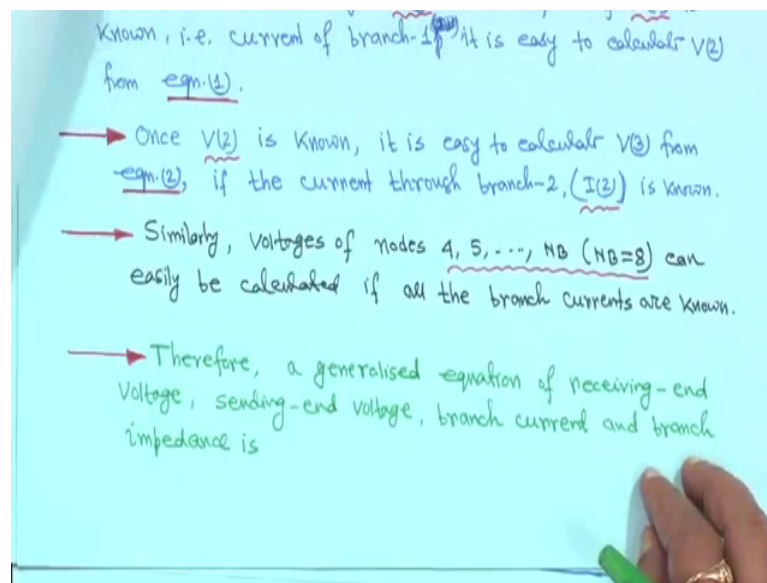 known, i.e. current of branch-1 it is easy to calculate V(2)
from eqn.(1).
Once V(2) is known, it is easy to calculate V(3) from
eqn.(2), if the current through branch-2, (I(2)) is known.
Similarly, voltages of nodes 4, 5, ..., NB (NB=8) can
easily be calculated if all the branch currents are known.
Therefore, a generalised equation of receiving-end
voltage, sending-end voltage, branch current and branch
impedance is